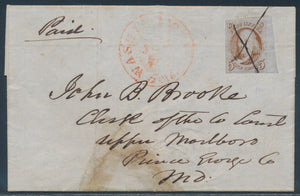 Paid.
John B. Brooke
Clerk of the Co Court
Upper Marlboro
Prince George Co
Md.
5 5